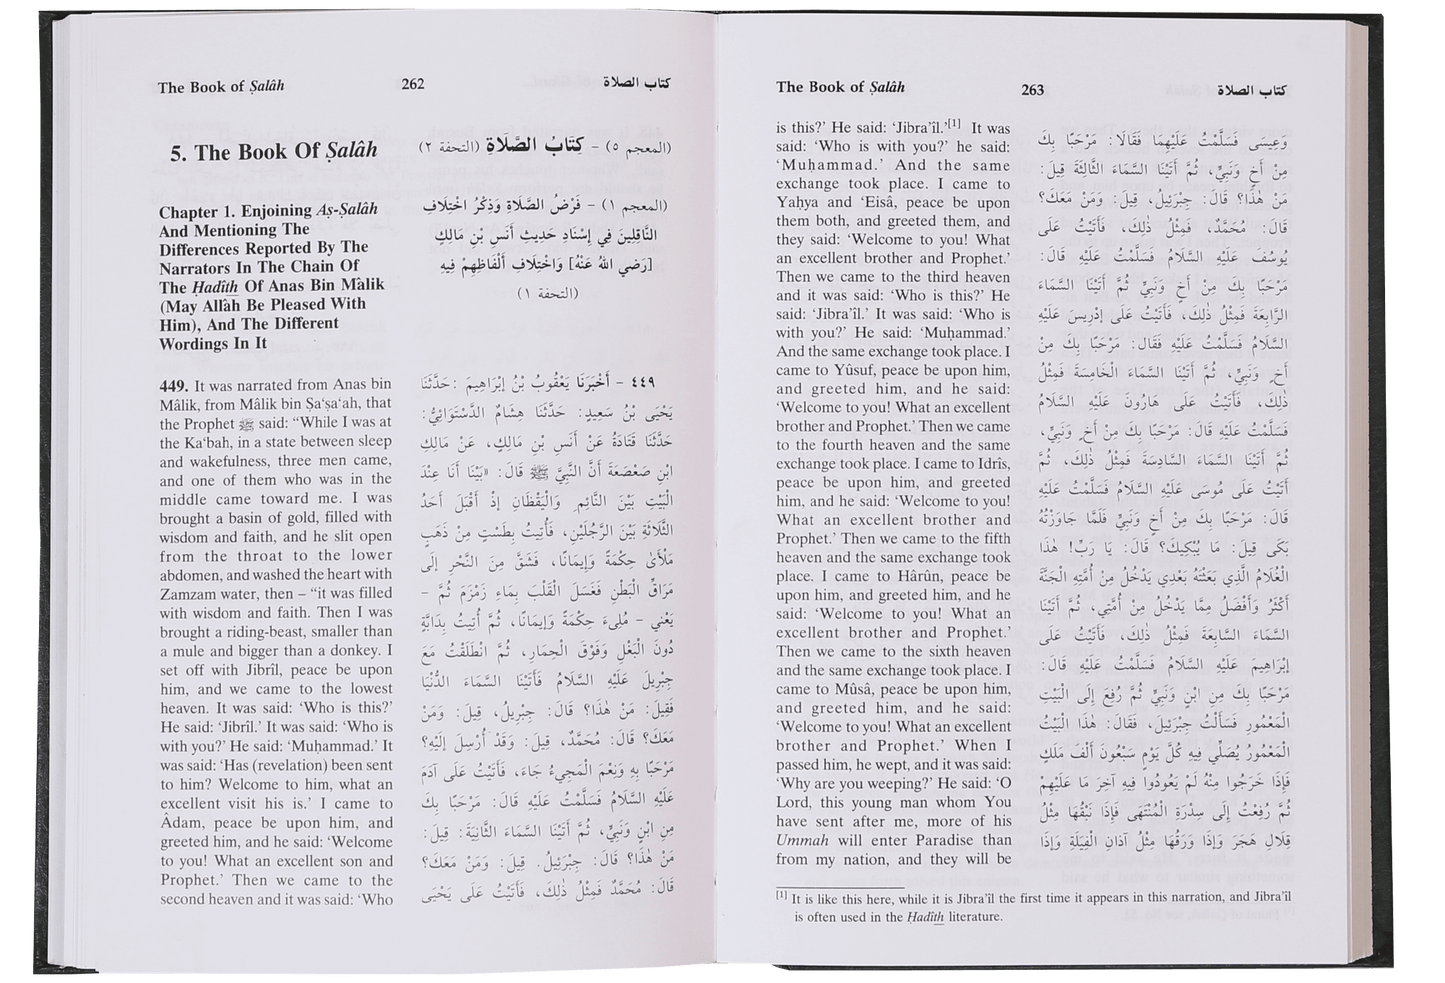 The Book of Ṣalâh 262 كتاب الصلاة
5. The Book Of Ṣalâh
Chapter 1. Enjoining Aṣ-Ṣalâh
And Mentioning The
Differences Reported By The
Narrators In The Chain Of
The Ḥadîth Of Anas Bin Mâlik
(May Allâh Be Pleased With
Him), And The Different
Wordings In It
449. It was narrated from Anas bin
Mâlik, from Mâlik bin Ṣa‘ṣa‘ah, that
the Prophet ﷺ said: “While I was at
the Ka‘bah, in a state between sleep
and wakefulness, three men came,
and one of them who was in the
middle came toward me. I was
brought a basin of gold, filled with
wisdom and faith, and he slit open
from the throat to the lower
abdomen, and washed the heart with
Zamzam water, then – “it was filled
with wisdom and faith. Then I was
brought a riding-beast, smaller than
a mule and bigger than a donkey. I
set off with Jibrîl, peace be upon
him, and we came to the lowest
heaven. It was said: ‘Who is this?’
He said: ‘Jibrîl.’ It was said: ‘Who is
with you?’ He said: ‘Muḥammad.’ It
was said: ‘Has (revelation) been sent
to him? Welcome to him, what an
excellent visit his is.’ I came to
Âdam, peace be upon him, and
greeted him, and he said: ‘Welcome
to you! What an excellent son and
Prophet.’ Then we came to the
second heaven and it was said: ‘Who
(المعجم ٥) - كِتَابُ الصَّلَاةِ (التحفة ٢)
(المعجم ١) - فَرْضُ الصَّلَاةِ وَذِكْرُ اخْتِلَافِ
النَّاقِلِينَ فِي إِسْنَادِ حَدِيثِ أَنَسِ بْنِ مَالِكٍ
[رَضِيَ اللهُ عَنْهُ] وَاخْتِلَافِ أَلْفَاظِهِمْ فِيهِ
(التحفة ١)
٤٤٩ - أَخْبَرَنَا يَعْقُوبُ بْنُ إِبْرَاهِيمَ: حَدَّثَنَا
يَحْيَى بْنُ سَعِيدٍ: حَدَّثَنَا هِشَامٌ الدَّسْتَوَائِيُّ:
حَدَّثَنَا قَتَادَةُ عَنْ أَنَسِ بْنِ مَالِكٍ، عَنْ مَالِكِ
ابْنِ صَعْصَعَةَ أَنَّ النَّبِيَّ ﷺ قَالَ: «بَيْنَا أَنَا عِنْدَ
الْبَيْتِ بَيْنَ النَّائِمِ وَالْيَقْظَانِ إِذْ أَقْبَلَ أَحَدُ
الثَّلَاثَةِ بَيْنَ الرَّجُلَيْنِ، فَأُتِيتُ بِطَسْتٍ مِنْ ذَهَبٍ
مَلْأَىٰ حِكْمَةً وَإِيمَانًا، فَشَقَّ مِنَ النَّحْرِ إِلَى
مَرَاقِّ الْبَطْنِ فَغَسَلَ الْقَلْبَ بِمَاءِ زَمْزَمَ ثُمَّ -
يَعْنِي - مُلِىءَ حِكْمَةً وَإِيمَانًا، ثُمَّ أُتِيتُ بِدَابَّةٍ
دُونَ الْبَغْلِ وَفَوْقَ الْحِمَارِ، ثُمَّ انْطَلَقْتُ مَعَ
جِبْرِيلَ عَلَيْهِ السَّلَامُ فَأَتَيْنَا السَّمَاءَ الدُّنْيَا
فَقِيلَ: مَنْ هٰذَا؟ قَالَ: جِبْرِيلُ، قِيلَ: وَمَنْ
مَعَكَ؟ قَالَ: مُحَمَّدٌ، قِيلَ: وَقَدْ أُرْسِلَ إِلَيْهِ؟
مَرْحَبًا بِهِ وَنِعْمَ الْمَجِيءُ جَاءَ، فَأَتَيْتُ عَلَى آدَمَ
عَلَيْهِ السَّلَامُ فَسَلَّمْتُ عَلَيْهِ قَالَ: مَرْحَبًا بِكَ
مِنِ ابْنٍ وَنَبِيٍّ، ثُمَّ أَتَيْنَا السَّمَاءَ الثَّانِيَةَ: قِيلَ:
مَنْ هٰذَا؟ قَالَ: جِبْرَئِيلُ. قِيلَ: وَمَنْ مَعَكَ؟
قَالَ: مُحَمَّدٌ فَمِثْلُ ذٰلِكَ، فَأَتَيْتُ عَلَى يَحْيَى
The Book of Ṣalâh 263 كتاب الصلاة
is this?’ He said: ‘Jibra’îl.’[1] It was
said: ‘Who is with you?’ he said:
‘Muḥammad.’ And the same
exchange took place. I came to
Yaḥya and ‘Eisâ, peace be upon
them both, and greeted them, and
they said: ‘Welcome to you! What
an excellent brother and Prophet.’
Then we came to the third heaven
and it was said: ‘Who is this?’ He
said: ‘Jibra’îl.’ It was said: ‘Who is
with you?’ He said: ‘Muḥammad.’
And the same exchange took place. I
came to Yûsuf, peace be upon him,
and greeted him, and he said:
‘Welcome to you! What an excellent
brother and Prophet.’ Then we came
to the fourth heaven and the same
exchange took place. I came to Idris,
peace be upon him, and greeted
him, and he said: ‘Welcome to you!
What an excellent brother and
Prophet.’ Then we came to the fifth
heaven and the same exchange took
place. I came to Hârûn, peace be
upon him, and greeted him, and he
said: ‘Welcome to you! What an
excellent brother and Prophet.’
Then we came to the sixth heaven
and the same exchange took place. I
came to Mûsâ, peace be upon him,
and greeted him, and he said:
‘Welcome to you! What an excellent
brother and Prophet.’ When I
passed him, he wept, and it was said:
‘Why are you weeping?’ He said: ‘O
Lord, this young man whom You
have sent after me, more of his
Ummah will enter Paradise than
from my nation, and they will be
وَعِيسَى فَسَلَّمْتُ عَلَيْهِمَا فَقَالَا: مَرْحَبًا بِكَ
مِنْ أَخٍ وَنَبِيٍّ، ثُمَّ أَتَيْنَا السَّمَاءَ الثَّالِثَةَ قِيلَ:
مَنْ هٰذَا؟ قَالَ: جِبْرَئِيلُ، قِيلَ: وَمَنْ مَعَكَ؟
قَالَ: مُحَمَّدٌ، فَمِثْلُ ذٰلِكَ، فَأَتَيْتُ عَلَى
يُوسُفَ عَلَيْهِ السَّلَامُ فَسَلَّمْتُ عَلَيْهِ قَالَ:
مَرْحَبًا بِكَ مِنْ أَخٍ وَنَبِيٍّ ثُمَّ أَتَيْنَا السَّمَاءَ
الرَّابِعَةَ فَمِثْلُ ذٰلِكَ، فَأَتَيْتُ عَلَى إِدْرِيسَ عَلَيْهِ
السَّلَامُ فَسَلَّمْتُ عَلَيْهِ فَقَالَ: مَرْحَبًا بِكَ مِنْ
أَخٍ وَنَبِيٍّ، ثُمَّ أَتَيْنَا السَّمَاءَ الْخَامِسَةَ فَمِثْلُ
ذٰلِكَ، فَأَتَيْتُ عَلَى هَارُونَ عَلَيْهِ السَّلَامُ
فَسَلَّمْتُ عَلَيْهِ قَالَ: مَرْحَبًا بِكَ مِنْ أَخٍ وَنَبِيٍّ،
ثُمَّ أَتَيْنَا السَّمَاءَ السَّادِسَةَ فَمِثْلُ ذٰلِكَ، ثُمَّ
أَتَيْتُ عَلَى مُوسَى عَلَيْهِ السَّلَامُ فَسَلَّمْتُ عَلَيْهِ
قَالَ: مَرْحَبًا بِكَ مِنْ أَخٍ وَنَبِيٍّ فَلَمَّا جَاوَزْتُهُ
بَكَى قِيلَ: مَا يُبْكِيكَ؟ قَالَ: يَا رَبِّ! هٰذَا
الْغُلَامُ الَّذِي بَعَثْتَهُ بَعْدِي يَدْخُلُ مِنْ أُمَّتِهِ الْجَنَّةَ
أَكْثَرُ وَأَفْضَلُ مِمَّا يَدْخُلُ مِنْ أُمَّتِي، ثُمَّ أَتَيْنَا
السَّمَاءَ السَّابِعَةَ فَمِثْلُ ذٰلِكَ، فَأَتَيْتُ عَلَى
إِبْرَاهِيمَ عَلَيْهِ السَّلَامُ فَسَلَّمْتُ عَلَيْهِ قَالَ:
مَرْحَبًا بِكَ مِنِ ابْنٍ وَنَبِيٍّ ثُمَّ رُفِعَ إِلَى الْبَيْتِ
الْمَعْمُورِ فَسَأَلْتُ جِبْرَئِيلَ، فَقَالَ: هٰذَا الْبَيْتُ
الْمَعْمُورُ يُصَلِّي فِيهِ كُلَّ يَوْمٍ سَبْعُونَ أَلْفَ مَلَكٍ
فَإِذَا خَرَجُوا مِنْهُ لَمْ يَعُودُوا فِيهِ آخِرَ مَا عَلَيْهِمْ
ثُمَّ رُفِعْتُ إِلَى سِدْرَةِ الْمُنْتَهَى فَإِذَا نَبْقُهَا مِثْلُ
قِلَالِ هَجَرَ وَإِذَا وَرَقُهَا مِثْلُ آذَانِ الْفِيَلَةِ وَإِذَا
[1] It is like this here, while it is Jibra’îl the first time it appears in this narration, and Jibra’îl
is often used in the Ḥadîth literature.